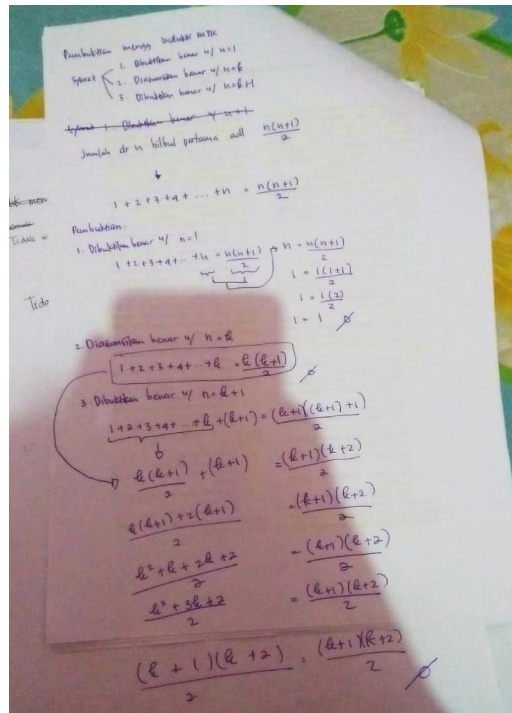 Pembuktian mengg induksi mtk
Syarat 1. Dibuktikan benar u/ n=1
2. Diasumsikan benar u/ n=k
3. Dibuktikan benar u/ n=k+1
Syarat 1. Dibuktikan benar u/ n+1
Jumlah dr n bilbul pertama adl n(n+1)/2
↓
1+2+3+4+ ... +n = n(n+1)/2
Pembuktian.
1. Dibuktikan benar u/ n=1
1+2+3+4+ ... +n = n(n+1)/2 → n = n(n+1)/2
1 = 1(1+1)/2
1 = 1(2)/2
1 = 1
2. Diasumsikan benar u/ n=k
1+2+3+4+ ... +k = k(k+1)/2
3. Dibuktikan benar u/ n=k+1
1+2+3+4+ ... +k+(k+1) = (k+1)((k+1)+1)/2
k(k+1)/2 + (k+1) = (k+1)(k+2)/2
k(k+1)+2(k+1)/2 = (k+1)(k+2)/2
k²+k+2k+2/2 = (k+1)(k+2)/2
k²+3k+2/2 = (k+1)(k+2)/2
(k+1)(k+2)/2 = (k+1)(k+2)/2
Tidak